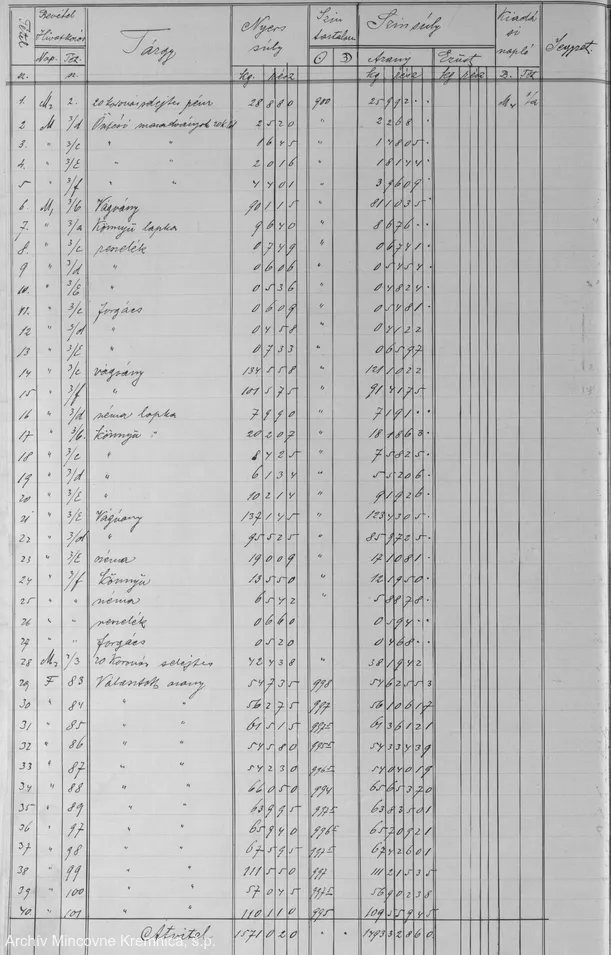 Tétel Bevétel Tárgy Nyers súly Szin tartalom Szin súly Kiadási napló Jegyzet
Hivatkozás
Nap. Tét. Arany Ezüst
sz. sz. kg. rész kg rész kg rész D. Tét.
1. M2 2. 20 koronás selejtes pénz 28 880 900 25 992 ·· M4
2 M 3/d 2 520 " 2 268 ··
3. " 3/c " " 1 645 " 1 4805 ·
4. " 3/E " " 2 016 " 1 8144 ·
5 " 3/f " " 4 401 " 3 9609 ·
6 M1 3/b Vágvány 90 115 " 81 1035 ·
7. " 3/a Könnyü lapka 9 640 " 8 676 ··
8. " 3/c resnelék 0 749 " 0 6741 ·
9 " 3/d " 0 606 " 0 5454 ·
10. " 3/E " 0 536 " 0 4824 ·
11. " 3/c forgács 0 609 " 0 5481 ·
12 " 3/d " 0 458 " 0 4122
13 " 3/E " 0 733 " 0 6597
14 " 3/c vágvány 134 558 " 121 1022
15 " 3/f " 101 575 " 91 4175
16 " 3/d néma lapka 7 990 " 7 191 ··
17 " 3/b. Könnyü " 20 207 " 18 1863 ·
18 " 3/c " 8 425 " 7 5825 ·
19 " 3/d " 6 134 " 5 5206 ·
20 " 3/E " 10 214 " 9 1926 ·
21 " 3/E Vágvány 137 145 " 123 4305 ·
22 " 3/d " 95 525 " 85 9725 ·
23 " 3/E néma 19 009 " 17 1081 ·
24 " 3/f Könnyü 13 550 " 12 1950 ·
25 " " néma 6 542 " 5 8878 ·
26 " " resnelék 0 660 0 594 ··
27 " " forgács 0 520 0 468 ··
28 M2 20 Koronás selejtes 42 438 " 38 1942
29 F 83 Választék arany 54 735 998 54 62553
30 " 84 " " 56 275 997 56 10617
31 " 85 " " 61 515 61 36121
32 " 86 " " 54 580 54 33439
33 " 87 " " 54 230 54 04019
34 " 88 " " 66 050 994 65 65370
35 " 89 " " 63 995 63 83501
36 " 97 " " 65 940 65 70921
37 " 98 " " 67 595 67 42601
38 " 99 " " 111 550 997 111 21535
39 " 100 " " 57 045 56 90238
40. " 101 " " 110 110 995 109 55945
Átvitel 1571 020 · · 1493 32860
Archív Mincovne Kremnica, š.p.